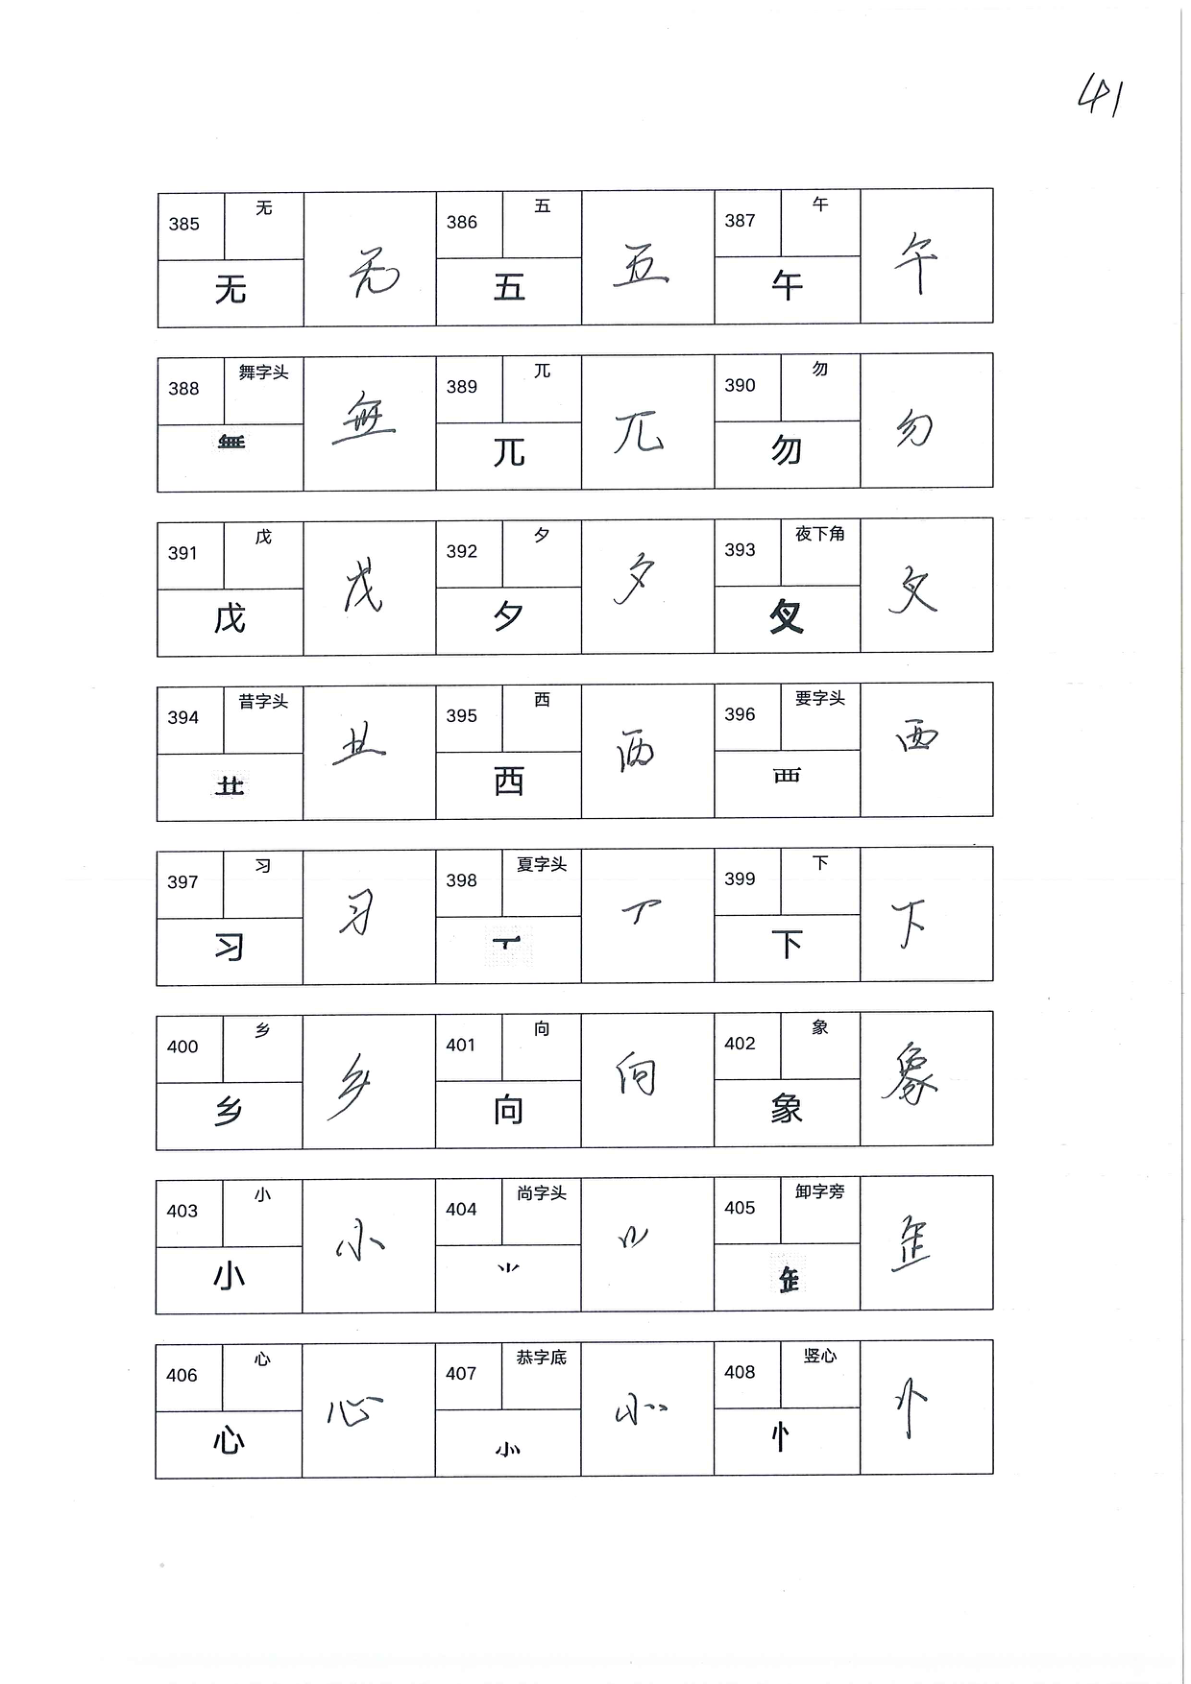 41
385 无 无 386 五 五 387 午 午
无 五 午
388 舞字头 389 兀 兀 390 勿 勿
兀 勿
391 戊 戊 392 夕 夕 393 夜下角
戊 夕
394 昔字头 龷 395 西 西 396 要字头 覀
龷 西 覀
397 习 习 398 夏字头 399 下 下
习 下
400 乡 乡 401 向 向 402 象 象
乡 向 象
403 小 小 404 尚字头 ⺌ 405 卸字旁
小 ⺌
406 心 心 407 恭字底 㣺 408 竖心 忄
心 㣺 忄